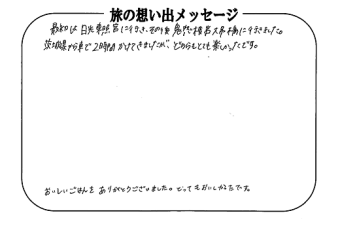 旅の想い出メッセージ
最初は日光東照宮に行き、その後鬼怒楯岩大吊橋に行きました。
茨城県から車で2時間かけてきましたが、どちらもとても楽しかったです。
おいしいごはんをありがとうございました。とってもおいしかったです。